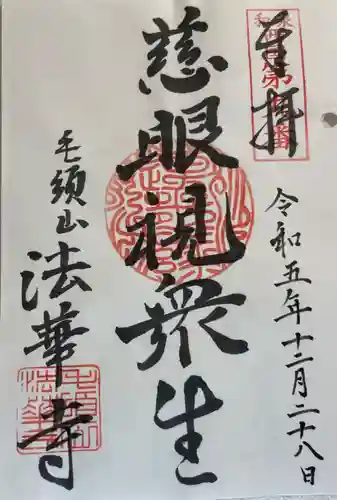 奉拝
令和五年十二月二十八日
慈眼視衆生
毛須山
法華寺